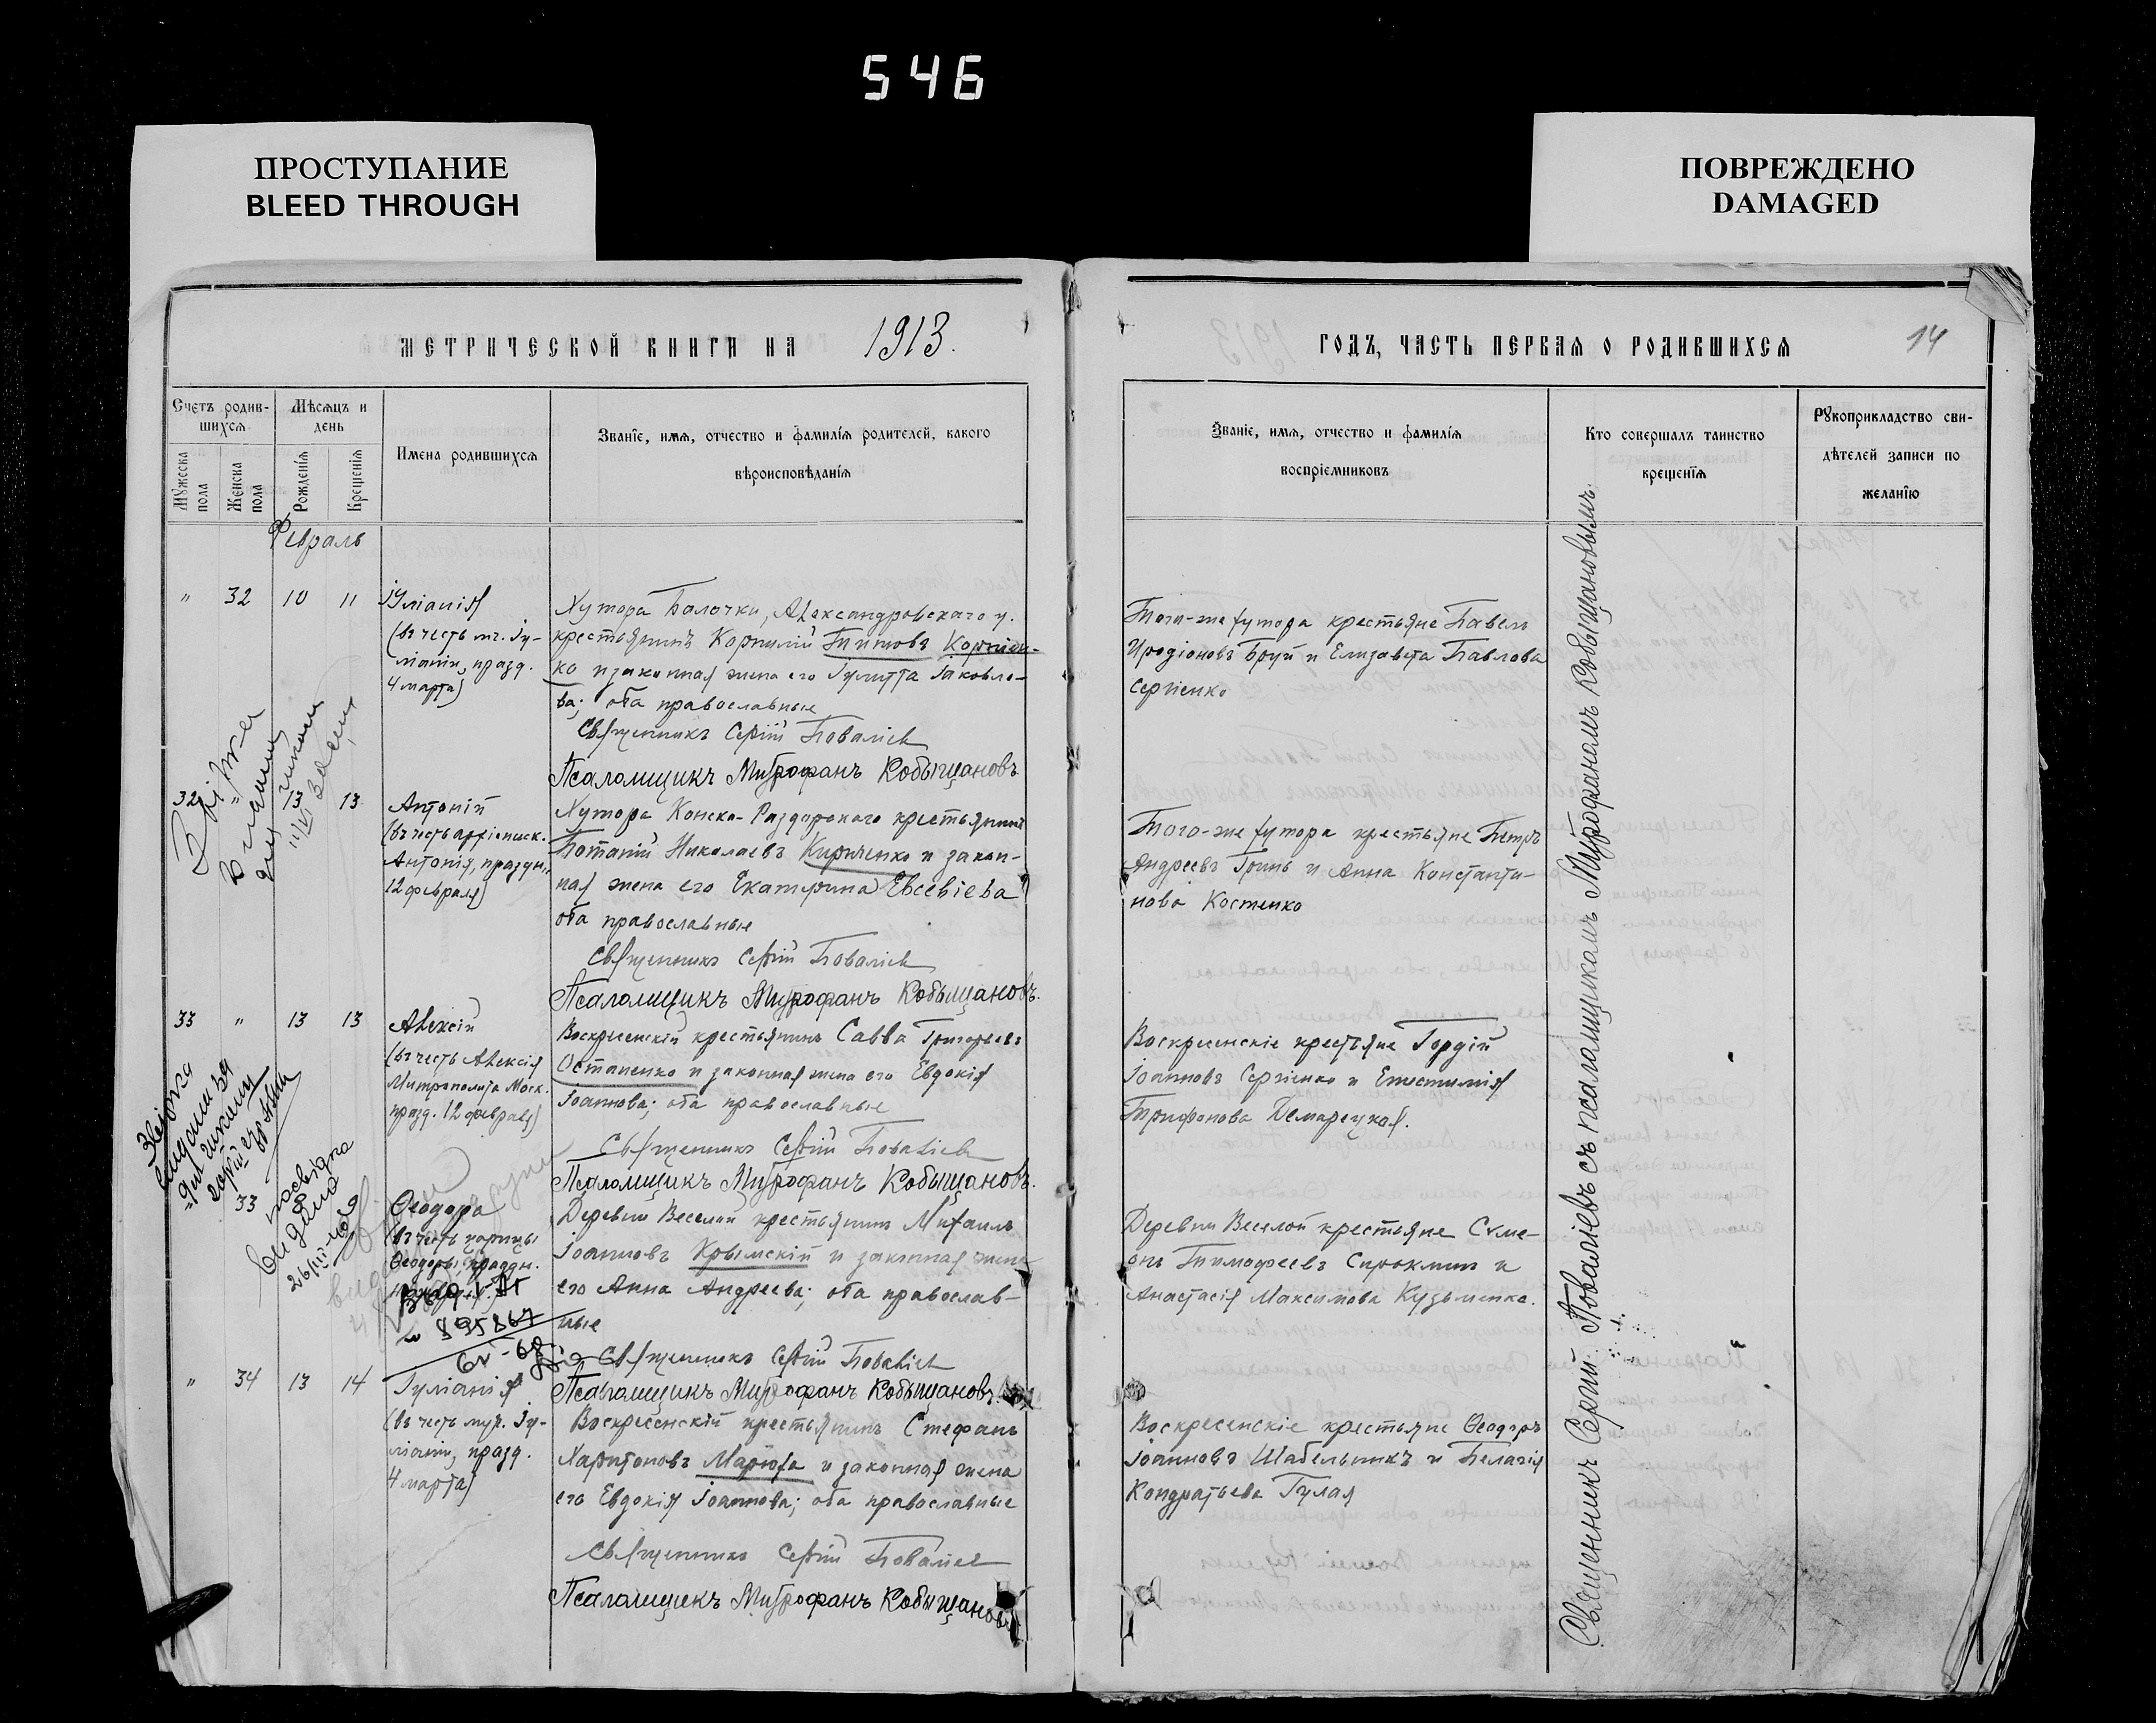 546
ПРОСТУПАНИЕ
BLEED THROUGH
ПОВРЕЖДЕНО
DAMAGED
МЕТРИЧЕСКОЙ КНИГИ НА 1913.
Счетъ родив-
шихся
Мѣсяцъ и
день
Мужеска
пола
Женска
пола
Рожденїя
Крещенїя
Имена родившихся
Званїе, имя, отчество и фамилїя родителей, какого
вѣроисповѣданїя
Февраль
" 32 10 11
Іуліанія
(въ честь мч. Іу-
ліаніи, празд.
4 марта)
Хутора Балочки, Александровскаго у.
крестьянинъ Корнилій Титовъ Корніен-
ко и законная жена его Іулитта Іаковле-
ва; оба православные
Священникъ Сергій Поваліевъ
Псаломщикъ Митрофанъ Кобыщановъ
32 " 13 13
Антоній
(въ честь архіеписк.
Антонія, праздн.
12 февраля)
Хутора Конско-Раздорскаго крестьянинъ
Потапій Николаевъ Кириченко и закон-
ная жена его Екатерина Евсевіева
оба православные
Священникъ Сергій Поваліевъ
Псаломщикъ Митрофанъ Кобыщановъ.
33 " 13 13
Алексій
(въ честь Алексія
Митрополита Моск.
празд. 12 февраля)
Воскресенскій крестьянинъ Савва Григорьевъ
Остапенко и законная жена его Евдокія
Іоаннова; оба православные
Священникъ Сергій Поваліевъ
Псаломщикъ Митрофанъ Кобыщановъ.
33
Ѳеодора
(въ честь царицы
Ѳеодоры, праздн.
Деревни Веселой крестьянинъ Михаилъ
Іоанновъ Крымскій и законная жена
его Анна Андреева; оба православ-
ные
895867
Священникъ Сергій Поваліевъ
Псаломщикъ Митрофанъ Кобыщановъ.
" 34 13 14
Іуліанія
(въ честь муч. Іу-
ліаніи, празд.
4 марта)
Воскресенскій крестьянинъ Стефанъ
Харитоновъ Марюха и законная жена
его Евдокія Іоаннова; оба православные
Священникъ Сергій Поваліевъ
Псаломщикъ Митрофанъ Кобыщановъ
ГОДЪ, ЧАСТЬ ПЕРВАЯ О РОДИВШИХСЯ
14
Званїе, имя, отчество и фамилїя
воспрїемниковъ
Кто совершалъ таинство
крещенїя
Рукоприкладство сви-
дѣтелей записи по
желанїю
Того-же хутора крестьяне Павелъ
Иродіоновъ Бруй и Елизавета Павлова
Сергіенко
Того-же хутора крестьяне Петръ
Андреевъ Гринь и Анна Константи-
нова Костенко
Воскресенскіе крестьяне Гордій
Іоанновъ Сергіенко и Епистимія
Трифонова Демарецкая.
Деревни Веселой крестьяне Симе-
онъ Тимофеевъ Сирокминъ и
Анастасія Максимова Кузьменко.
Воскресенскіе крестьяне Ѳеодоръ
Іоанновъ Шабельникъ и Пелагія
Кондратьева Гулая
Священникъ Сергій Поваліевъ съ псаломщикомъ Митрофаномъ Кобыщановымъ.